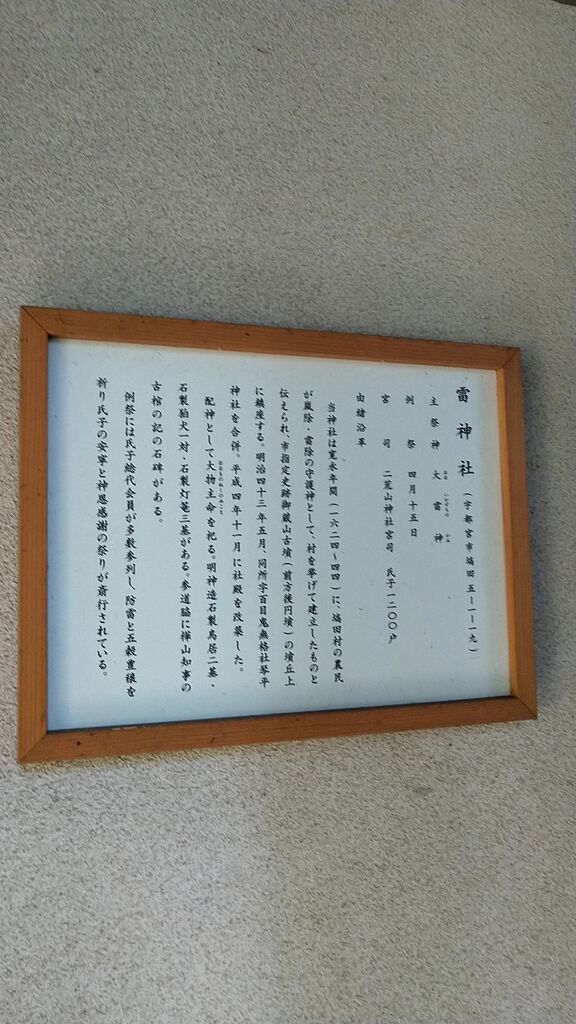 雷神社（宇都宮市塙田五ー一ー一九）
主祭神 大雷神
おお いかずちの かみ
例祭 四月十五日
宮司 二荒山神社宮司 氏子一二〇〇戸
由緒沿革
当神社は寛永年間（一六二四～四四）に、塙田村の農民
が嵐除・雷除の守護神として、村を挙げて建立したものと
伝えられ、市指定史跡御蔵山古墳（前方後円墳）の墳丘上
に鎮座する。明治四十三年五月、同所字百目鬼無格社琴平
神社を合併。平成四年十一月に社殿を改築した。
配神として大物主命を祀る。明神造石製鳥居二基・
おおものぬしのみこと
石製狛犬一対・石製灯篭三基がある。参道脇に樺山知事の
古棺の記の石碑がある。
例祭には氏子総代会員が多数参列し、防雷と五穀豊穣を
祈り氏子の安寧と神恩感謝の祭りが斎行されている。